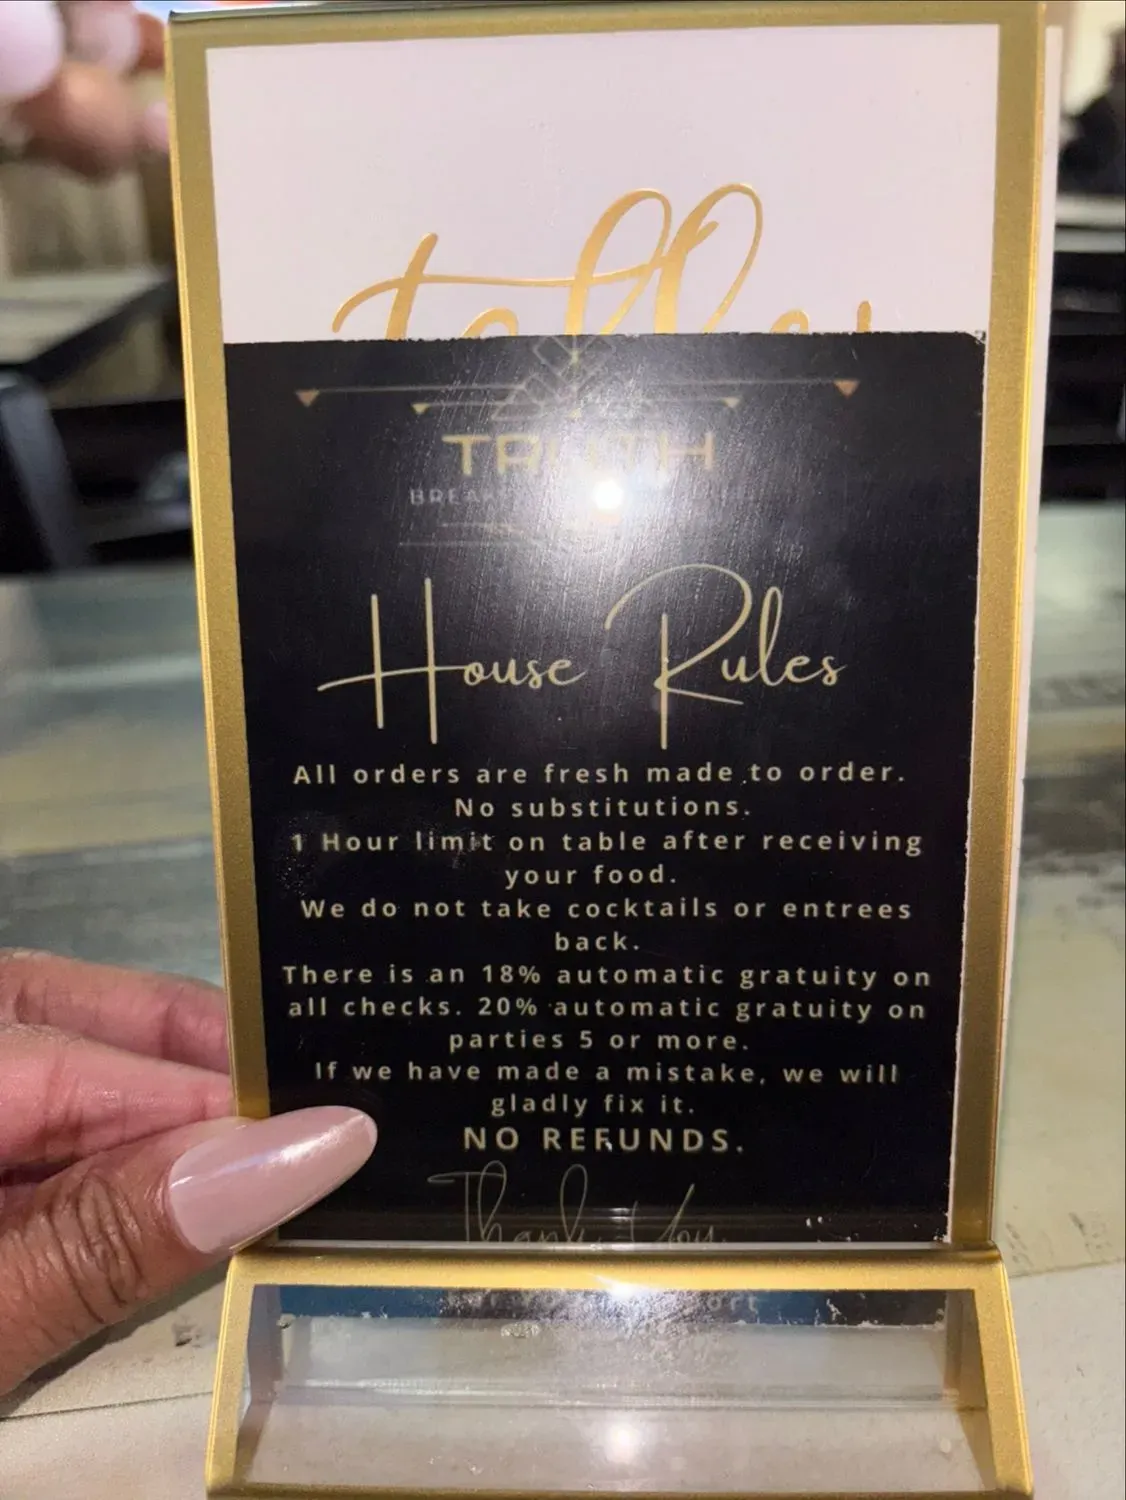 TRUTH
House Rules
All orders are fresh made to order.
No substitutions.
1 Hour limit on table after receiving
your food.
We do not take cocktails or entrees
back.
There is an 18% automatic gratuity on
all checks. 20% automatic gratuity on
parties 5 or more.
If we have made a mistake, we will
gladly fix it.
NO REFUNDS.
Thank You